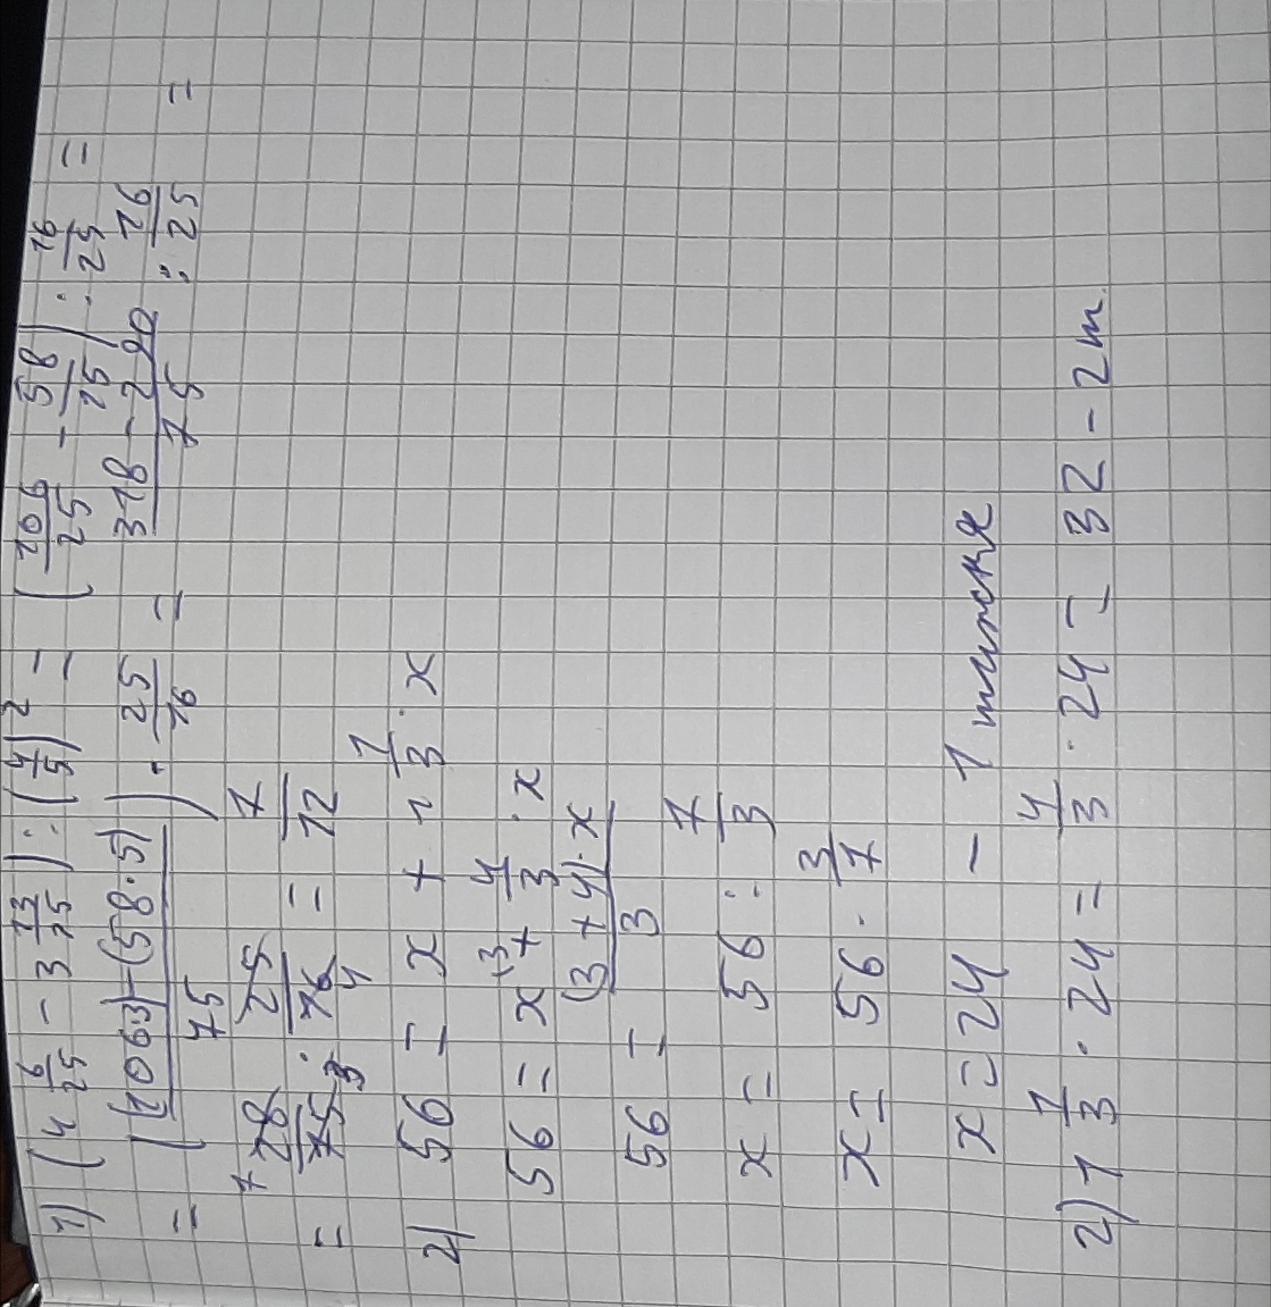 1) (4 6/25 - 3 13/15) : (4/5)² = (106/25 - 58/15) : 16/25 =
= ((106·3)-(58·5)/75) · 25/16 = 318-290/75 : 16/25 =
= 28/75 · 25/16 = 7/12
2) 56 = x + 1 1/3 · x
56 = x + 4/3 · x
56 = (3+4)·x/3
x = 56 : 7/3
x = 56 · 3/7
x = 24 - 1
2) 1 1/3 · 24 = 4/3 · 24 = 32 - 2 т.